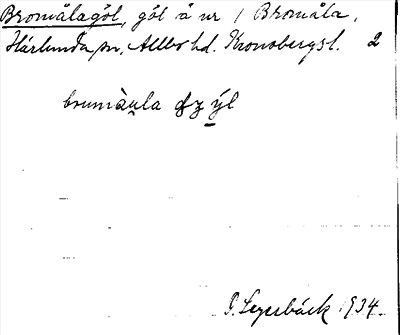 Bromålagöl, göl å nr 1 Bromåla,
Härlunda sn, Allbo hd. Kronobergs l. 2
brumàu̲la ɖz ý̲l
P. Segerbäck 1934.